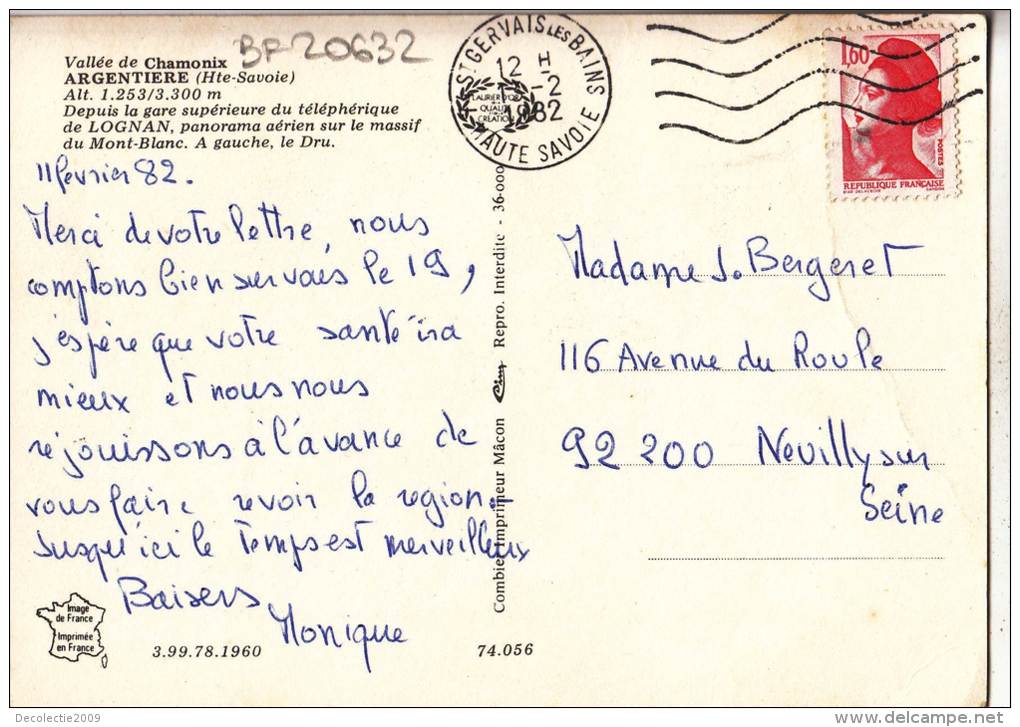 BF 20632
Vallée de Chamonix
ARGENTIERE (Hte-Savoie)
Alt. 1.253/3.300 m
Depuis la gare supérieure du téléphérique
de LOGNAN, panorama aérien sur le massif
du Mont-Blanc. A gauche, le Dru.
11 fevrier 82.
Merci de votre lettre, nous
comptons bien sur vous le 19,
j'espère que votre santé ira
mieux et nous nous
réjouissons à l'avance de
vous faire revoir la region.
Jusqu'ici le temps est merveilleux
Baisers
Monique
Image
de France
Imprimée
en France
3.99.78.1960
74.056
Combier Imprimeur Mâcon Cim Repro. Interdite - 36-000
ST GERVAIS LES BAINS
12 H
-2
1982
LAURIER D'OR
QUALITE
CREATION
HAUTE SAVOIE
1,60
POSTES
REPUBLIQUE FRANÇAISE
GANDON
Madame J. Bergeret
116 Avenue du Roule
92 200 Neuilly sur
Seine
Decolectie2009
www.delcampe.net